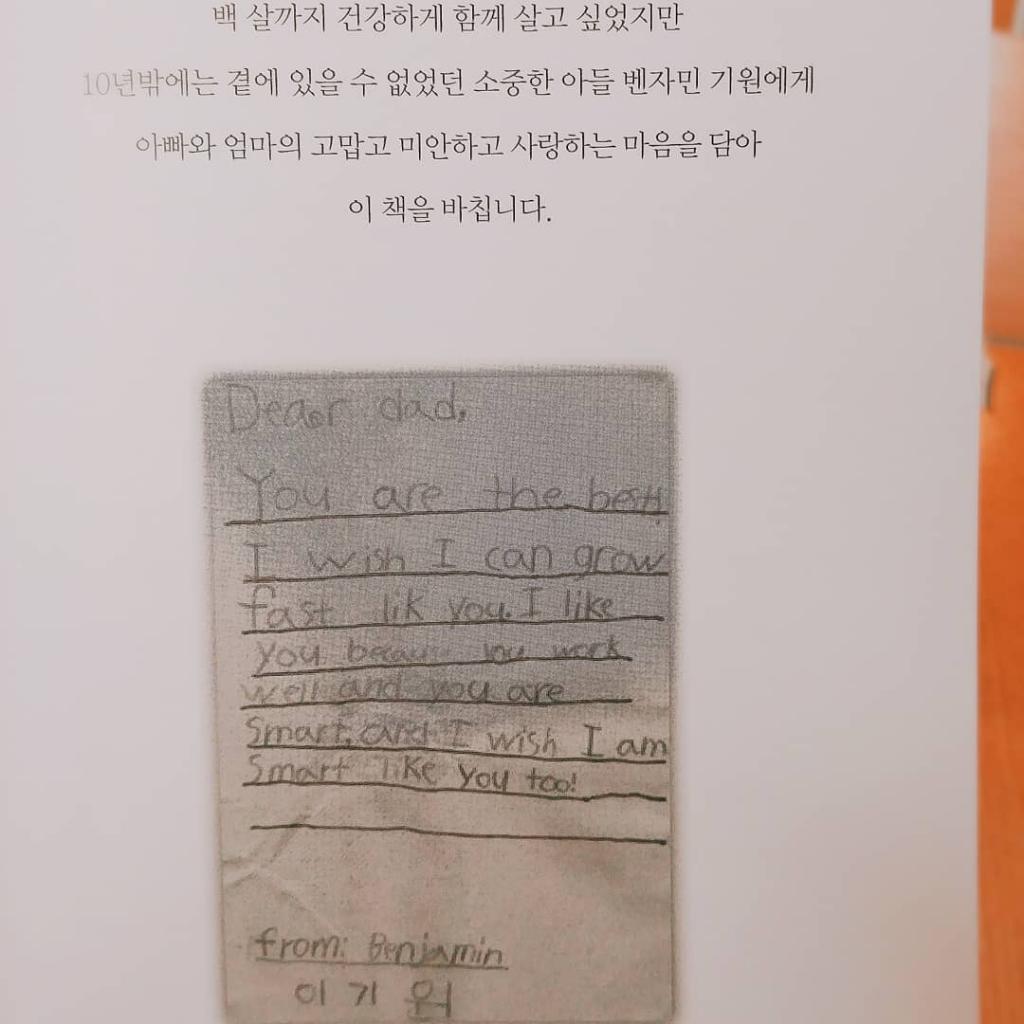 백 살까지 건강하게 함께 살고 싶었지만
10년밖에는 곁에 있을 수 없었던 소중한 아들 벤자민 기원에게
아빠와 엄마의 고맙고 미안하고 사랑하는 마음을 담아
이 책을 바칩니다.
Dear dad,
You are the best!
I wish I can grow
fast lik you. I like
you because you work
well and you are
smart, and I wish I am
smart like you too!
from: Benjamin
이기원